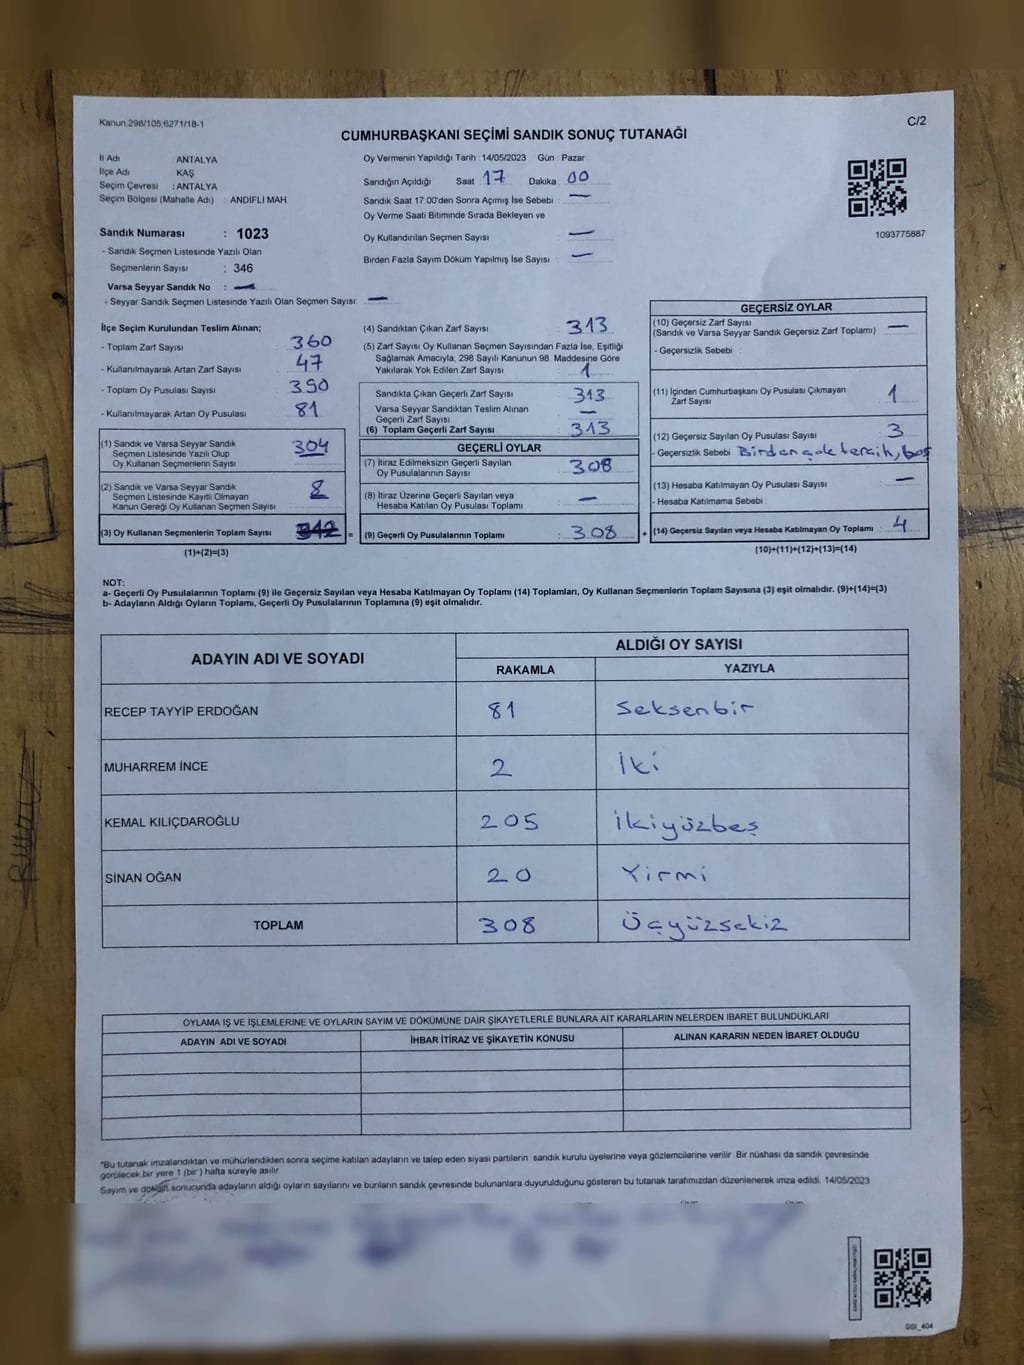 Kanun 298/105,6271/18-1
C/2
CUMHURBAŞKANI SEÇİMİ SANDIK SONUÇ TUTANAĞI
İl Adı ANTALYA
İlçe Adı KAŞ
Seçim Çevresi : ANTALYA
Seçim Bölgesi (Mahalle Adı) : ANDİFLİ MAH
Sandık Numarası : 1023
- Sandık Seçmen Listesinde Yazılı Olan
Seçmenlerin Sayısı : 346
Varsa Seyyar Sandık No : —
- Seyyar Sandık Seçmen Listesinde Yazılı Olan Seçmen Sayısı: —
Oy Vermenin Yapıldığı Tarih : 14/05/2023 Gün : Pazar
Sandığın Açıldığı Saat 17 Dakika 00
Sandık Saat 17.00'den Sonra Açımış İse Sebebi : —
Oy Verme Saati Bitiminde Sırada Bekleyen ve
Oy Kullandırılan Seçmen Sayısı : —
Birden Fazla Sayım Döküm Yapılmış İse Sayısı : —
1093775887
İlçe Seçim Kurulundan Teslim Alınan;
- Toplam Zarf Sayısı 360
- Kullanılmayarak Artan Zarf Sayısı : 47
- Toplam Oy Pusulası Sayısı : 390
- Kullanılmayarak Artan Oy Pusulası 81
(1) Sandık ve Varsa Seyyar Sandık
Seçmen Listesinde Yazılı Olup
Oy Kullanan Seçmenlerin Sayısı 304
(2) Sandık ve Varsa Seyyar Sandık
Seçmen Listesinde Kayıtlı Olmayan
Kanun Gereği Oy Kullanan Seçmen Sayısı 8
(3) Oy Kullanan Seçmenlerin Toplam Sayısı 312 =
(1)+(2)=(3)
(4) Sandıktan Çıkan Zarf Sayısı : 313
(5) Zarf Sayısı Oy Kullanan Seçmen Sayısından Fazla İse, Eşitliği
Sağlamak Amacıyla, 298 Sayılı Kanunun 98. Maddesine Göre
Yakılarak Yok Edilen Zarf Sayısı : 1
Sandıkta Çıkan Geçerli Zarf Sayısı : 313
Varsa Seyyar Sandıktan Teslim Alınan
Geçerli Zarf Sayısı —
(6) Toplam Geçerli Zarf Sayısı : 313
GEÇERLİ OYLAR
(7) İtiraz Edilmeksizin Geçerli Sayılan
Oy Pusulalarının Sayısı : 308
(8) İtiraz Üzerine Geçerli Sayılan veya
Hesaba Katılan Oy Pusulası Toplamı : —
(9) Geçerli Oy Pusulalarının Toplamı : 308 +
GEÇERSİZ OYLAR
(10) Geçersiz Zarf Sayısı
(Sandık ve Varsa Seyyar Sandık Geçersiz Zarf Toplamı) : —
- Geçersizlik Sebebi :
(11) İçinden Cumhurbaşkanı Oy Pusulası Çıkmayan
Zarf Sayısı : 1
(12) Geçersiz Sayılan Oy Pusulası Sayısı : 3
- Geçersizlik Sebebi : Birden çok tercih, boş
(13) Hesaba Katılmayan Oy Pusulası Sayısı : —
- Hesaba Katılmama Sebebi :
(14) Geçersiz Sayılan veya Hesaba Katılmayan Oy Toplamı : 4
(10)+(11)+(12)+(13)=(14)
NOT:
a- Geçerli Oy Pusulalarının Toplamı (9) ile Geçersiz Sayılan veya Hesaba Katılmayan Oy Toplamı (14) Toplamları, Oy Kullanan Seçmenlerin Toplam Sayısına (3) eşit olmalıdır. (9)+(14)=(3)
b- Adayların Aldığı Oyların Toplamı, Geçerli Oy Pusulalarının Toplamına (9) eşit olmalıdır.
ADAYIN ADI VE SOYADI ALDIĞI OY SAYISI
RAKAMLA YAZIYLA
RECEP TAYYİP ERDOĞAN 81 Seksenbir
MUHARREM İNCE 2 İki
KEMAL KILIÇDAROĞLU 205 İkiyüzbeş
SİNAN OĞAN 20 Yirmi
TOPLAM 308 Üçyüzsekiz
OYLAMA İŞ VE İŞLEMLERİNE VE OYLARIN SAYIM VE DÖKÜMÜNE DAİR ŞİKAYETLERLE BUNLARA AİT KARARLARIN NELERDEN İBARET BULUNDUKLARI
ADAYIN ADI VE SOYADI İHBAR İTİRAZ VE ŞİKAYETİN KONUSU ALINAN KARARIN NEDEN İBARET OLDUĞU
*Bu tutanak imzalandıktan ve mühürlendikten sonra seçime katılan adayların ve talep eden siyasi partilerin sandık kurulu üyelerine veya gözlemcilerine verilir. Bir nüshası da sandık çevresinde
görülecek bir yere 1 (bir ) hafta süreyle asılır.
Sayım ve döküm sonucunda adayların aldığı oyların sayılarını ve bunların sandık çevresinde bulunanlara duyurulduğunu gösteren bu tutanak tarafımızdan düzenlenerek imza edildi. 14/05/2023
SSI_404